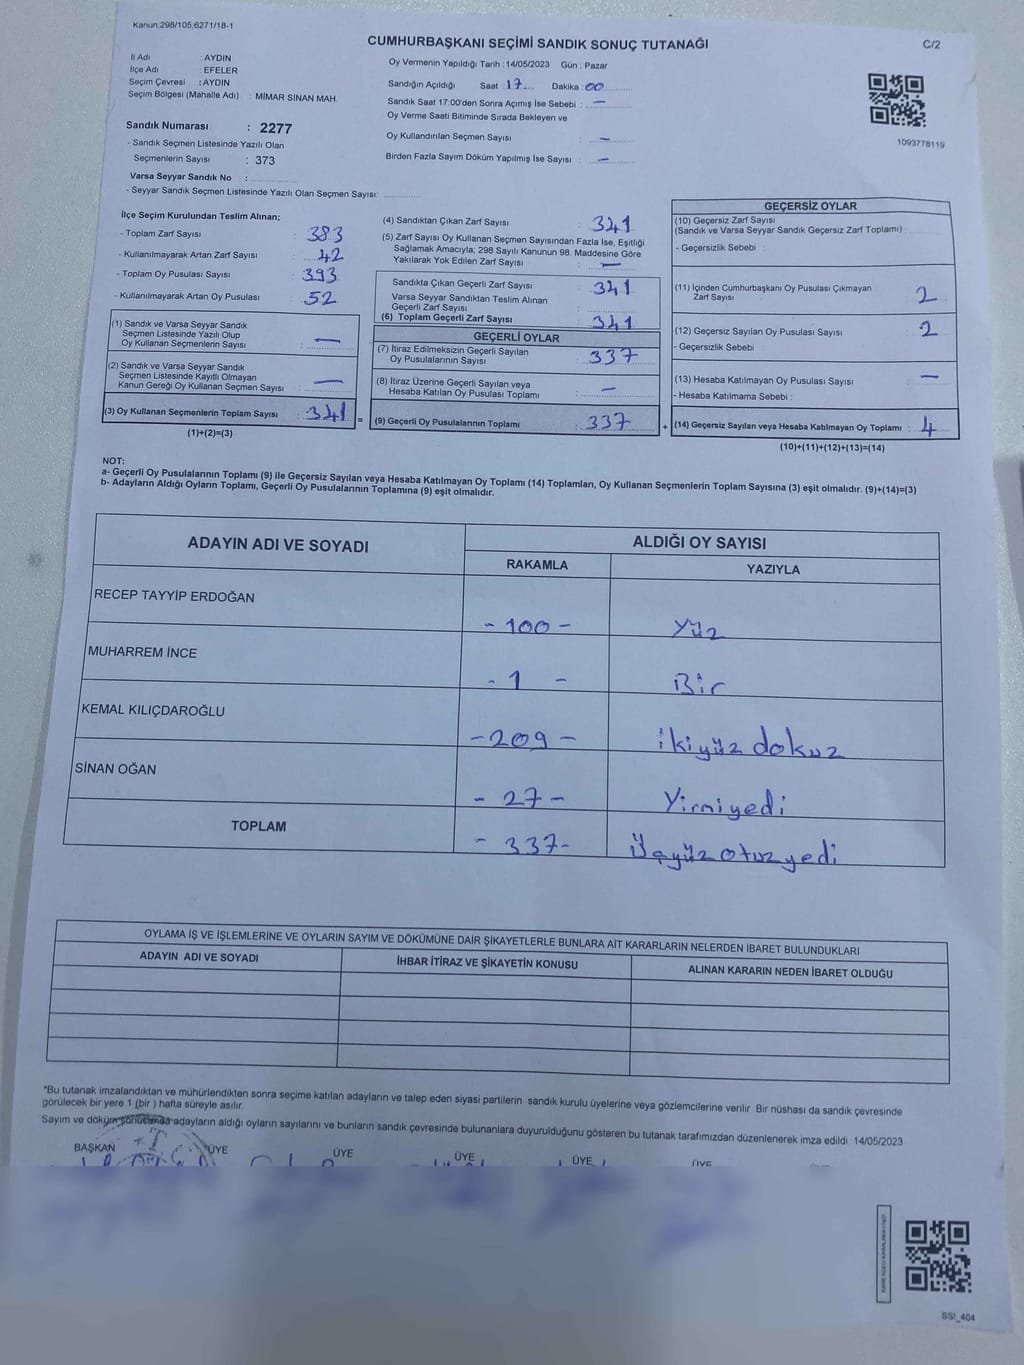 Kanun:298/105,6271/18-1
CUMHURBAŞKANI SEÇİMİ SANDIK SONUÇ TUTANAĞI
C/2
İl Adı : AYDIN
İlçe Adı : EFELER
Seçim Çevresi : AYDIN
Seçim Bölgesi (Mahalle Adı) : MİMAR SİNAN MAH.
Sandık Numarası : 2277
- Sandık Seçmen Listesinde Yazılı Olan
Seçmenlerin Sayısı : 373
Varsa Seyyar Sandık No :
- Seyyar Sandık Seçmen Listesinde Yazılı Olan Seçmen Sayısı:
Oy Vermenin Yapıldığı Tarih : 14/05/2023 Gün : Pazar
Sandığın Açıldığı Saat : 17 Dakika : 00
Sandık Saat 17:00'den Sonra Açımış İse Sebebi : —
Oy Verme Saati Bitiminde Sırada Bekleyen ve
Oy Kullandırılan Seçmen Sayısı : —
Birden Fazla Sayım Döküm Yapılmış İse Sayısı : —
1093778119
İlçe Seçim Kurulundan Teslim Alınan;
- Toplam Zarf Sayısı : 383
- Kullanılmayarak Artan Zarf Sayısı : 42
- Toplam Oy Pusulası Sayısı : 393
- Kullanılmayarak Artan Oy Pusulası : 52
(1) Sandık ve Varsa Seyyar Sandık
Seçmen Listesinde Yazılı Olup
Oy Kullanan Seçmenlerin Sayısı : —
(2) Sandık ve Varsa Seyyar Sandık
Seçmen Listesinde Kayıtlı Olmayan
Kanun Gereği Oy Kullanan Seçmen Sayısı : —
(3) Oy Kullanan Seçmenlerin Toplam Sayısı : 341
(1)+(2)=(3)
(4) Sandıktan Çıkan Zarf Sayısı : 341
(5) Zarf Sayısı Oy Kullanan Seçmen Sayısından Fazla İse, Eşitliği
Sağlamak Amacıyla; 298 Sayılı Kanunun 98. Maddesine Göre
Yakılarak Yok Edilen Zarf Sayısı : —
Sandıkta Çıkan Geçerli Zarf Sayısı : 341
Varsa Seyyar Sandıktan Teslim Alınan
Geçerli Zarf Sayısı :
(6) Toplam Geçerli Zarf Sayısı : 341
GEÇERLİ OYLAR
(7) İtiraz Edilmeksizin Geçerli Sayılan
Oy Pusulalarının Sayısı : 337
(8) İtiraz Üzerine Geçerli Sayılan veya
Hesaba Katılan Oy Pusulası Toplamı : —
(9) Geçerli Oy Pusulalarının Toplamı : 337
GEÇERSİZ OYLAR
(10) Geçersiz Zarf Sayısı
(Sandık ve Varsa Seyyar Sandık Geçersiz Zarf Toplamı) :
- Geçersizlik Sebebi :
(11) İçinden Cumhurbaşkanı Oy Pusulası Çıkmayan
Zarf Sayısı : 2
(12) Geçersiz Sayılan Oy Pusulası Sayısı : 2
- Geçersizlik Sebebi :
(13) Hesaba Katılmayan Oy Pusulası Sayısı : —
- Hesaba Katılmama Sebebi :
(14) Geçersiz Sayılan veya Hesaba Katılmayan Oy Toplamı : 4
(10)+(11)+(12)+(13)=(14)
NOT:
a- Geçerli Oy Pusulalarının Toplamı (9) ile Geçersiz Sayılan veya Hesaba Katılmayan Oy Toplamı (14) Toplamları, Oy Kullanan Seçmenlerin Toplam Sayısına (3) eşit olmalıdır. (9)+(14)=(3)
b- Adayların Aldığı Oyların Toplamı, Geçerli Oy Pusulalarının Toplamına (9) eşit olmalıdır.
ADAYIN ADI VE SOYADI
ALDIĞI OY SAYISI
RAKAMLA
YAZIYLA
RECEP TAYYİP ERDOĞAN - 100 - Yüz
MUHARREM İNCE - 1 - Bir
KEMAL KILIÇDAROĞLU - 209 - ikiyüz dokuz
SİNAN OĞAN - 27 - Yirmiyedi
TOPLAM - 337 - Üçyüz otuz yedi
OYLAMA İŞ VE İŞLEMLERİNE VE OYLARIN SAYIM VE DÖKÜMÜNE DAİR ŞİKAYETLERLE BUNLARA AİT KARARLARIN NELERDEN İBARET BULUNDUKLARI
ADAYIN ADI VE SOYADI
İHBAR İTİRAZ VE ŞİKAYETİN KONUSU
ALINAN KARARIN NEDEN İBARET OLDUĞU
*Bu tutanak imzalandıktan ve mühürlendikten sonra seçime katılan adayların ve talep eden siyasi partilerin sandık kurulu üyelerine veya gözlemcilerine verilir. Bir nüshası da sandık çevresinde
görülecek bir yere 1 (bir ) hafta süreyle asılır.
Sayım ve döküm sonucunda adayların aldığı oyların sayılarını ve bunların sandık çevresinde bulunanlara duyurulduğunu gösteren bu tutanak tarafımızdan düzenlenerek imza edildi. 14/05/2023
BAŞKAN ÜYE ÜYE ÜYE ÜYE ÜYE
SSI_404